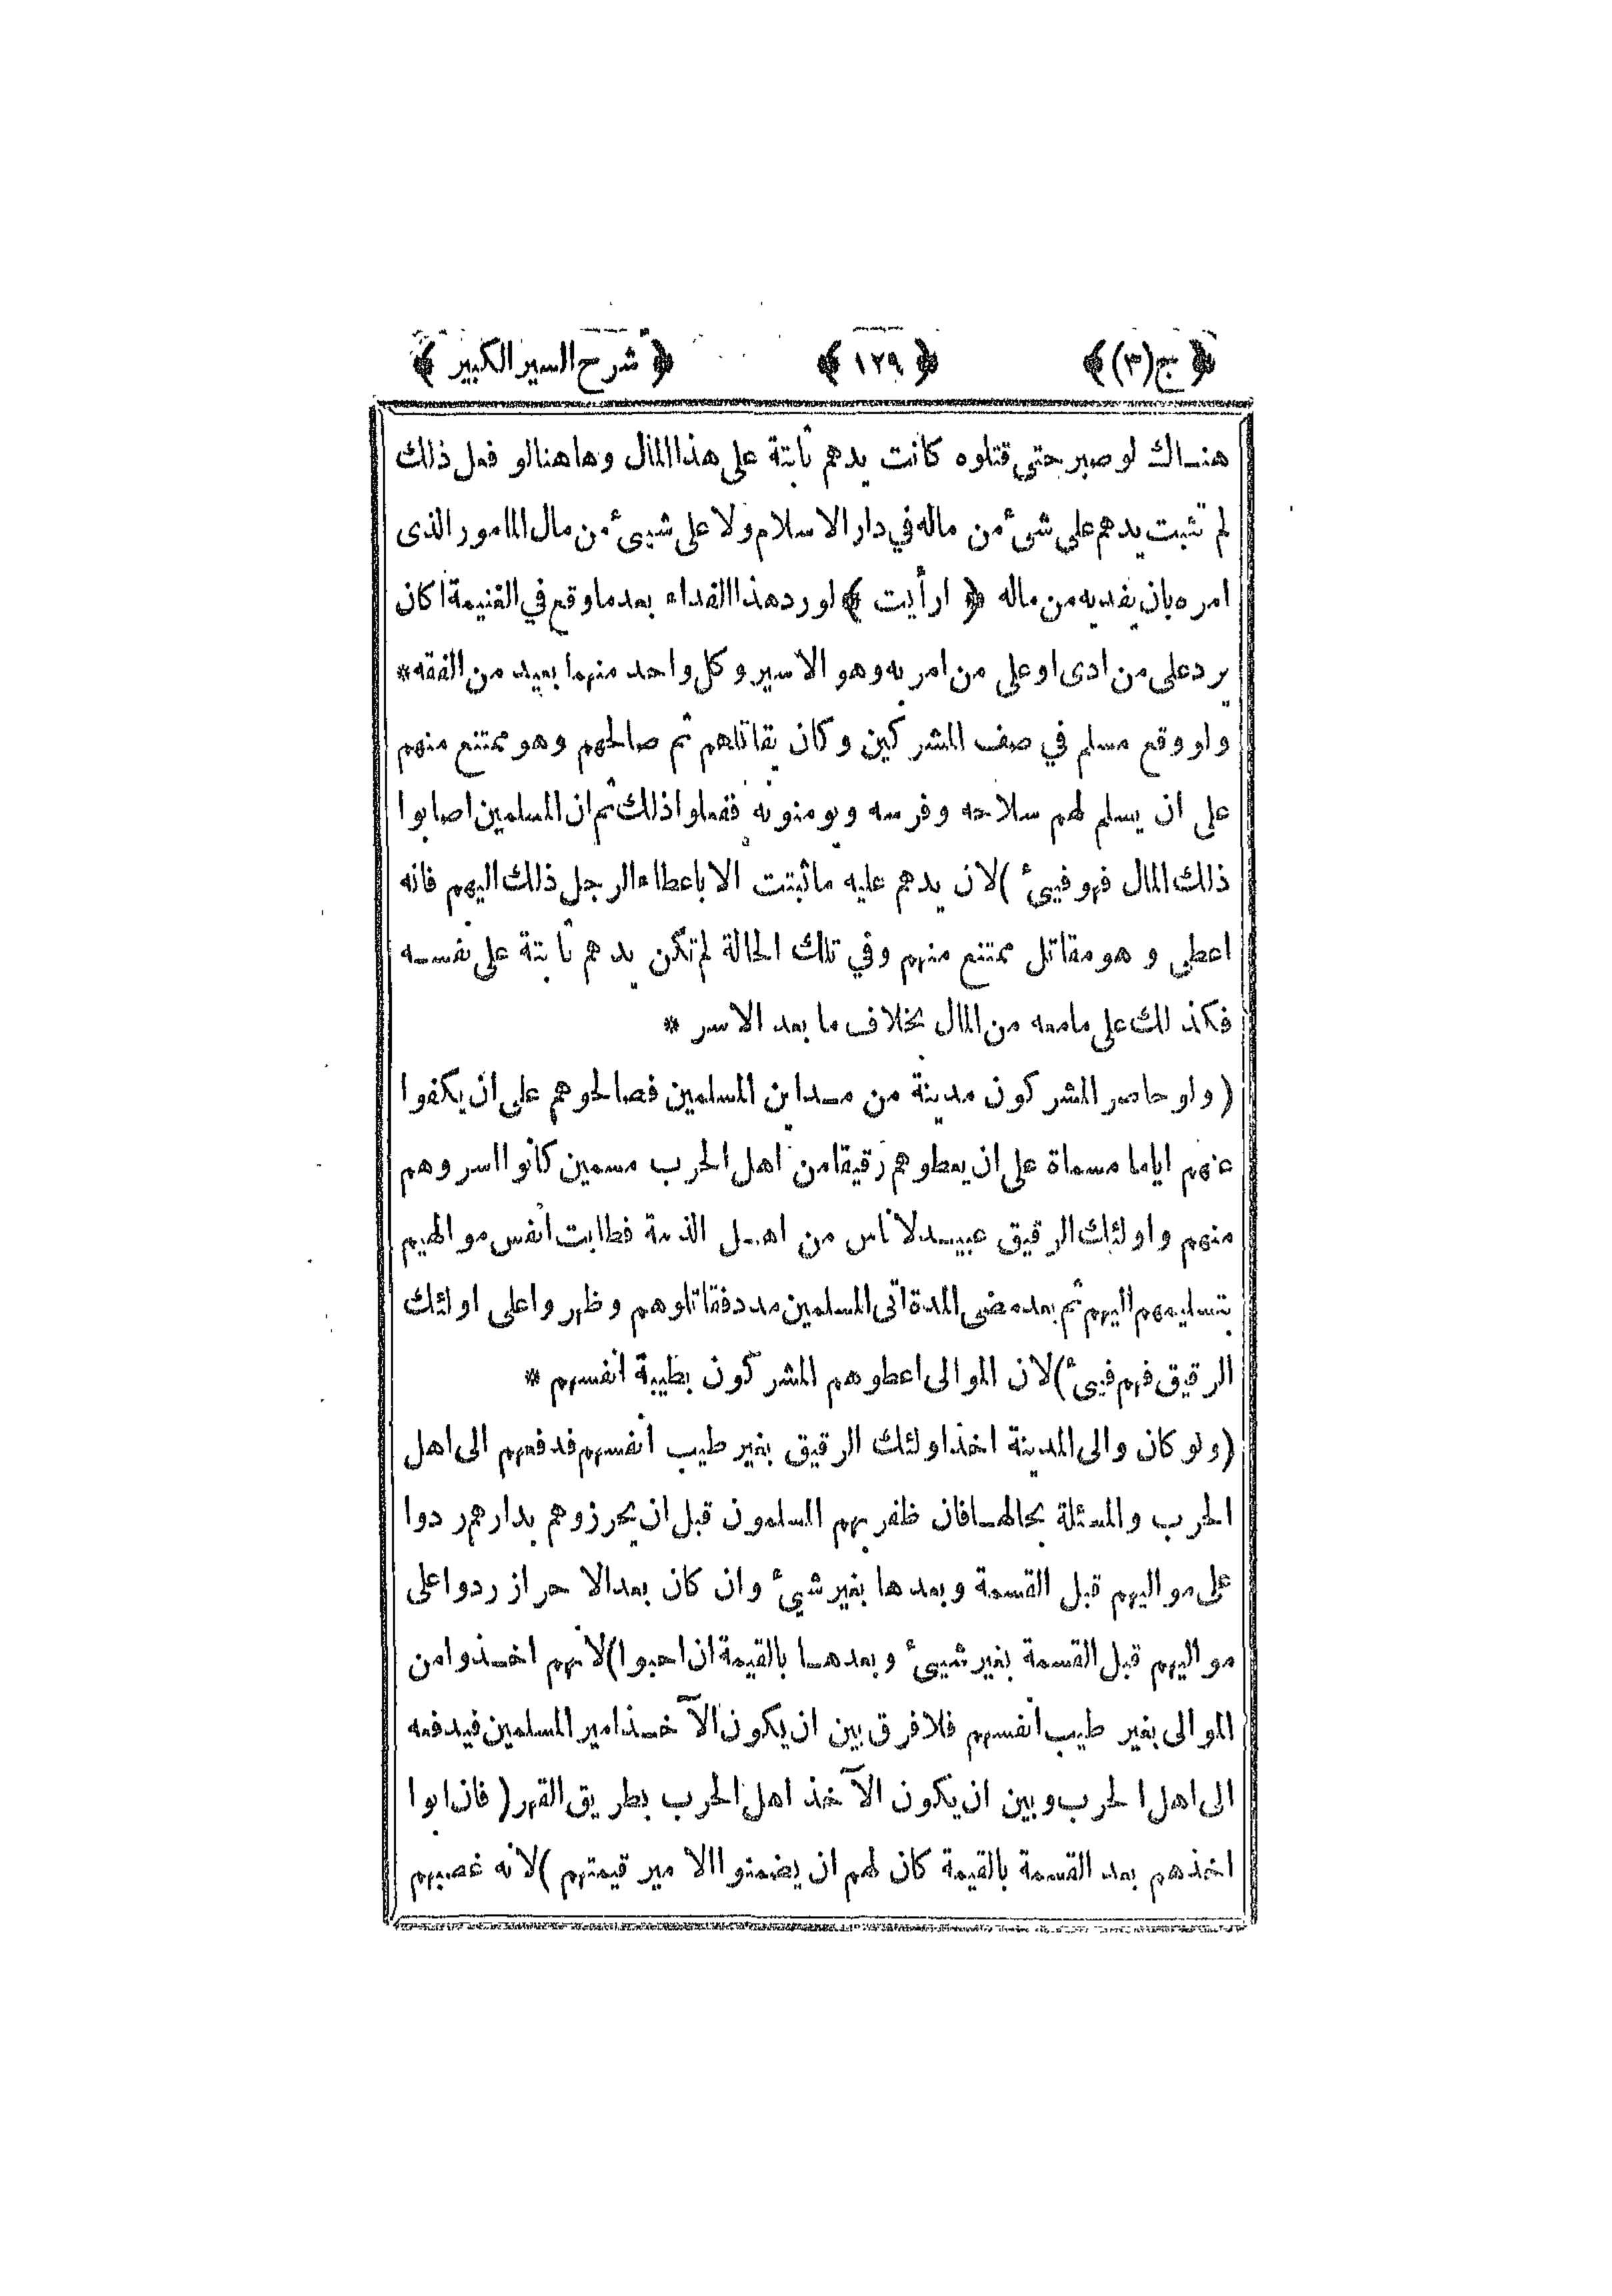 ﴿ ج (٣) ﴾ ﴿ ١٢٩ ﴾ ﴿ شرح السير الكبير ﴾
هناك لو صبر حتى قتلوه كانت يدهم ثابتة على هذا المال وها هنا لو فعل ذلك
لم تثبت يدهم على شئ من ماله في دار الاسلام ولا على شيئ من مال المامور الذى
امره بان يفديه من ماله ﴿ ارأيت ﴾ لو رد هذا الفداء بعد ما وقع في الغنيمة اكان
يرد على من ادى او على من امر به وهو الاسير وكل واحد منهما بعيد من الفقه *
ولو وقع مسلم في صف المشركين وكان يقاتلهم ثم صالحهم وهو ممتنع منهم
على ان يسلم لهم سلاحه وفرسه ويومنونه ففعلوا ذلك ثم ان المسلمين اصابوا
ذلك المال فهو فيئ ) لان يدهم عليه ما ثبتت الا باعطاء الرجل ذلك اليهم فانه
اعطى وهو مقاتل ممتنع منهم وفي تلك الحالة لم تكن يدهم ثابتة على نفسه
فكذلك على ما معه من المال بخلاف ما بعد الاسر *
( ولو حاصر المشركون مدينة من مداين المسلمين فصالحوهم على ان يكفوا
عنهم اياما مسماة على ان يعطوهم رقيقا من اهل الحرب مسمين كانوا اسروهم
منهم واولئك الرقيق عبيد لاناس من اهل الذمة فطابت انفس مواليهم
بتسليمهم اليهم ثم بعد مضى المدة اتى المسلمين مدد فقاتلوهم وظهروا على اولئك
الرقيق فهم فيئ ) لان الموالى اعطوهم المشركون بطيبة انفسهم *
( ولو كان والى المدينة اخذ اولئك الرقيق بغير طيب انفسهم فدفعهم الى اهل
الحرب والمسئلة بحالها فان ظفر بهم المسلمون قبل ان يحرزوهم بدارهم ردوا
على مواليهم قبل القسمة وبعدها بغير شيئ وان كان بعد الاحراز ردوا على
مواليهم قبل القسمة بغير شيئ وبعدها بالقيمة ان احبوا ) لانهم اخذوا من
الموالى بغير طيب انفسهم فلا فرق بين ان يكون الآخذ امير المسلمين فيدفعه
الى اهل الحرب وبين ان يكون الآخذ اهل الحرب بطريق القهر ( فان ابوا
اخذهم بعد القسمة بالقيمة كان لهم ان يضمنوا الامير قيمتهم ) لانه غصبهم